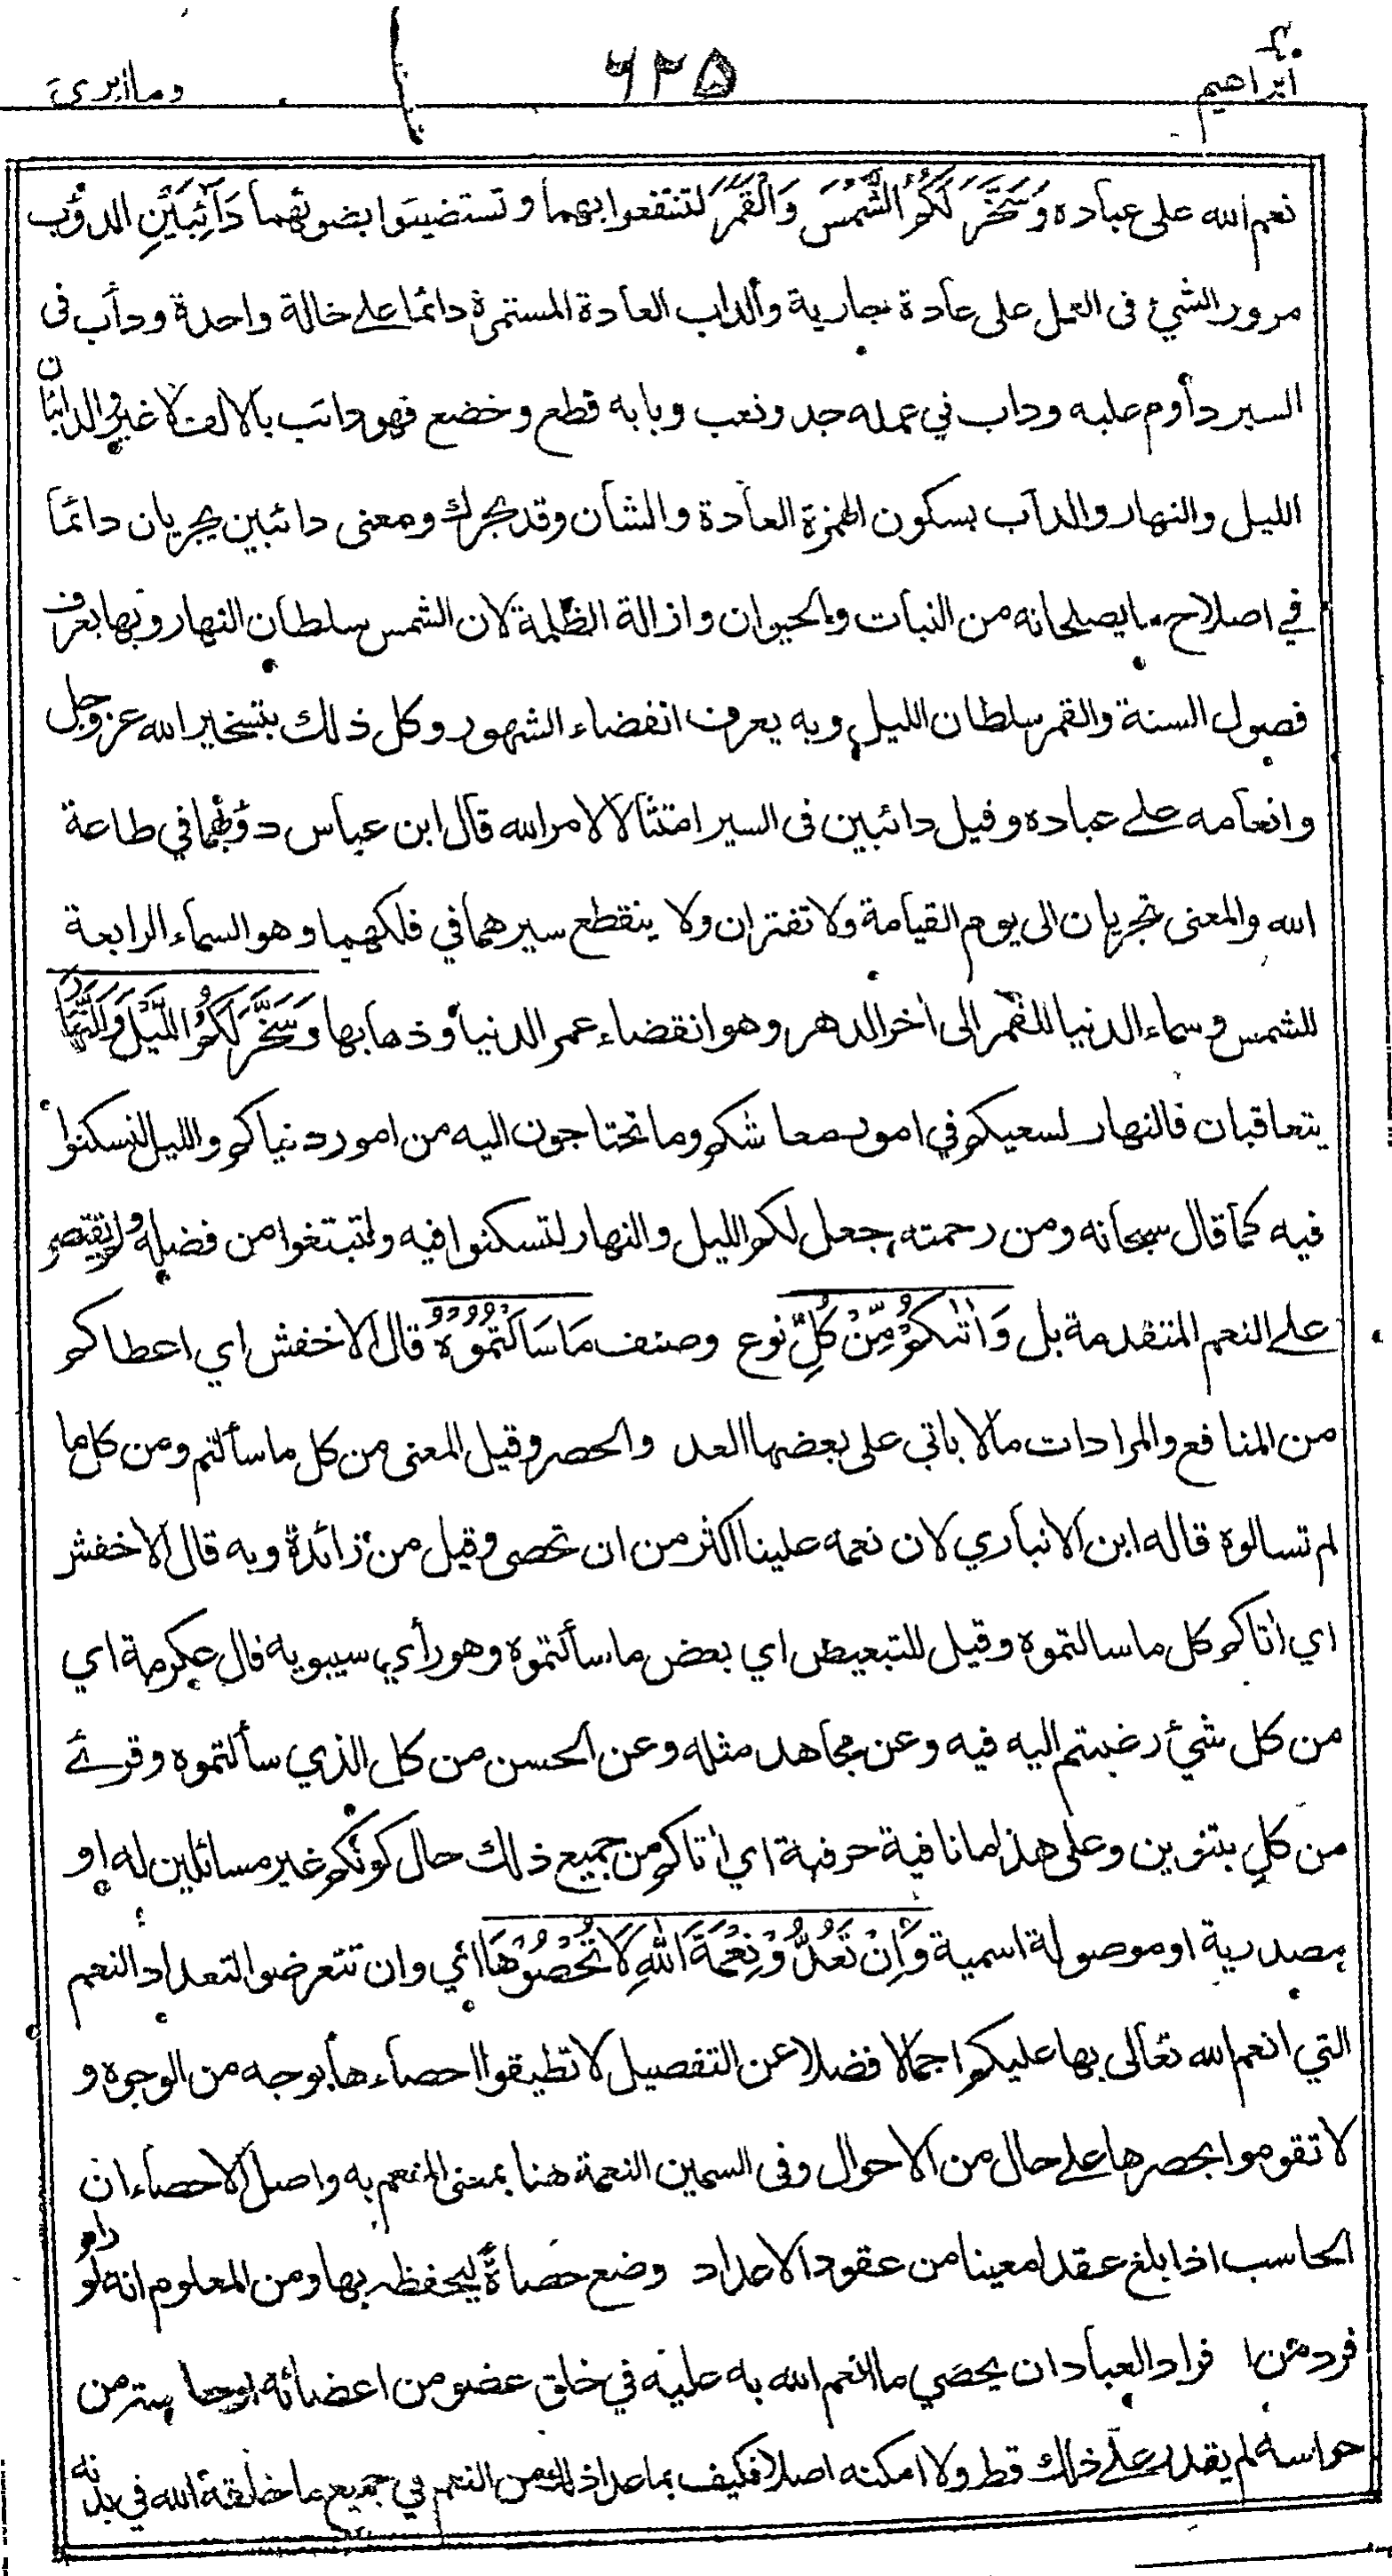 ابراهيم ٦٢٥ وما ابرئ
نعم الله على عباده وَسَخَّرَ لَكُمُ الشَّمْسَ وَالْقَمَرَ لتنتفعوا بهما وتستضيئوا بضوئهما دَآئِبَيْنِ الدؤب
مرور الشيئ فى العمل على عادة جارية والداب العادة المستمرة دائما على حالة واحدة ودأب فى
السير دأوم عليه وداب في عمله جد وتعب وبابه قطع وخضع فهو دائب بالالف لا غير والدائبان
الليل والنهار والدآب بسكون الهمزة العادة والشان وقد يحرك ومعنى دائبين يجريان دائما
في اصلاح ما يصلحانه من النبات والحيوان وازالة الظلمة لان الشمس سلطان النهار وبها يعرف
فصول السنة والقمر سلطان الليل وبه يعرف انقضاء الشهور وكل ذلك بتسخير الله عز وجل
وانعامه على عباده وقيل دائبين فى السير امتثالا لامر الله قال ابن عباس دؤبهما في طاعة
الله والمعنى تجريان الى يوم القيامة ولا تفتران ولا ينقطع سيرهما في فلكهما وهو السماء الرابعة
للشمس وسماء الدنيا للقمر الى اخر الدهر وهو انقضاء عمر الدنيا وذهابها وَسَخَّرَ لَكُمُ اللَّيْلَ وَالنَّهَارَ
يتعاقبان فالنهار لسعيكم في امور معاشكم وما تحتاجون اليه من امور دنياكم والليل لتسكنوا
فيه كما قال سبحانه ومن رحمته جعل لكم الليل والنهار لتسكنوا فيه ولتبتغوا من فضله ولم يقتصر
على النعم المتقدمة بل وَاٰتٰىكُمْ مِّنْ كُلِّ نوع وصنف مَا سَاَلْتُمُوْهُ قال الاخفش اي اعطاكم
من المنافع والمرادات مالا ياتي على بعضها العد والحصر وقيل المعنى من كل ما سألتم ومن كل ما
لم تسالوه قاله ابن الانباري لان نعمه علينا اكثر من ان تحصى وقيل من زائدة وبه قال الاخفش
اي اتاكم كل ما سالتموه وقيل للتبعيض اي بعض ما سألتموه وهو رأي سيبويه قال عكرمة اي
من كل شيئ رغبتم اليه فيه وعن مجاهد مثله وعن الحسن من كل الذي سألتموه وقرئ
من كلٍ بتنوين وعلى هذا ما نافية حرفية اي اتاكم من جميع ذلك حال كونكم غير مسائلين له او
مصدرية او موصولة اسمية وَاِنْ تَعُدُّوْ نِعْمَةَ اللّٰهِ لَا تُحْصُوْهَا اي وان تتعرضوا لتعداد النعم
التي انعم الله تعالى بها عليكم اجمالا فضلا عن التفصيل لا تطيقوا احصاءها بوجه من الوجوه و
لا تقوموا بحصرها على حال من الاحوال وفى السمين النعمة هنا بمعنى المنعم به واصل الاحصاء ان
الحاسب اذا بلغ عقدا معينا من عقود الاعداد وضع حصاة ليحفظه بها ومن المعلوم انه لو رام
فرد من افراد العباد ان يحصي ما انعم الله به عليه في خلق عضو من اعضائه او حاسة من
حواسه لم يقدر على ذلك قط ولا امكنه اصلا فكيف بما عدا ذلك من النعم في جميع ما خلقه الله في بدنه